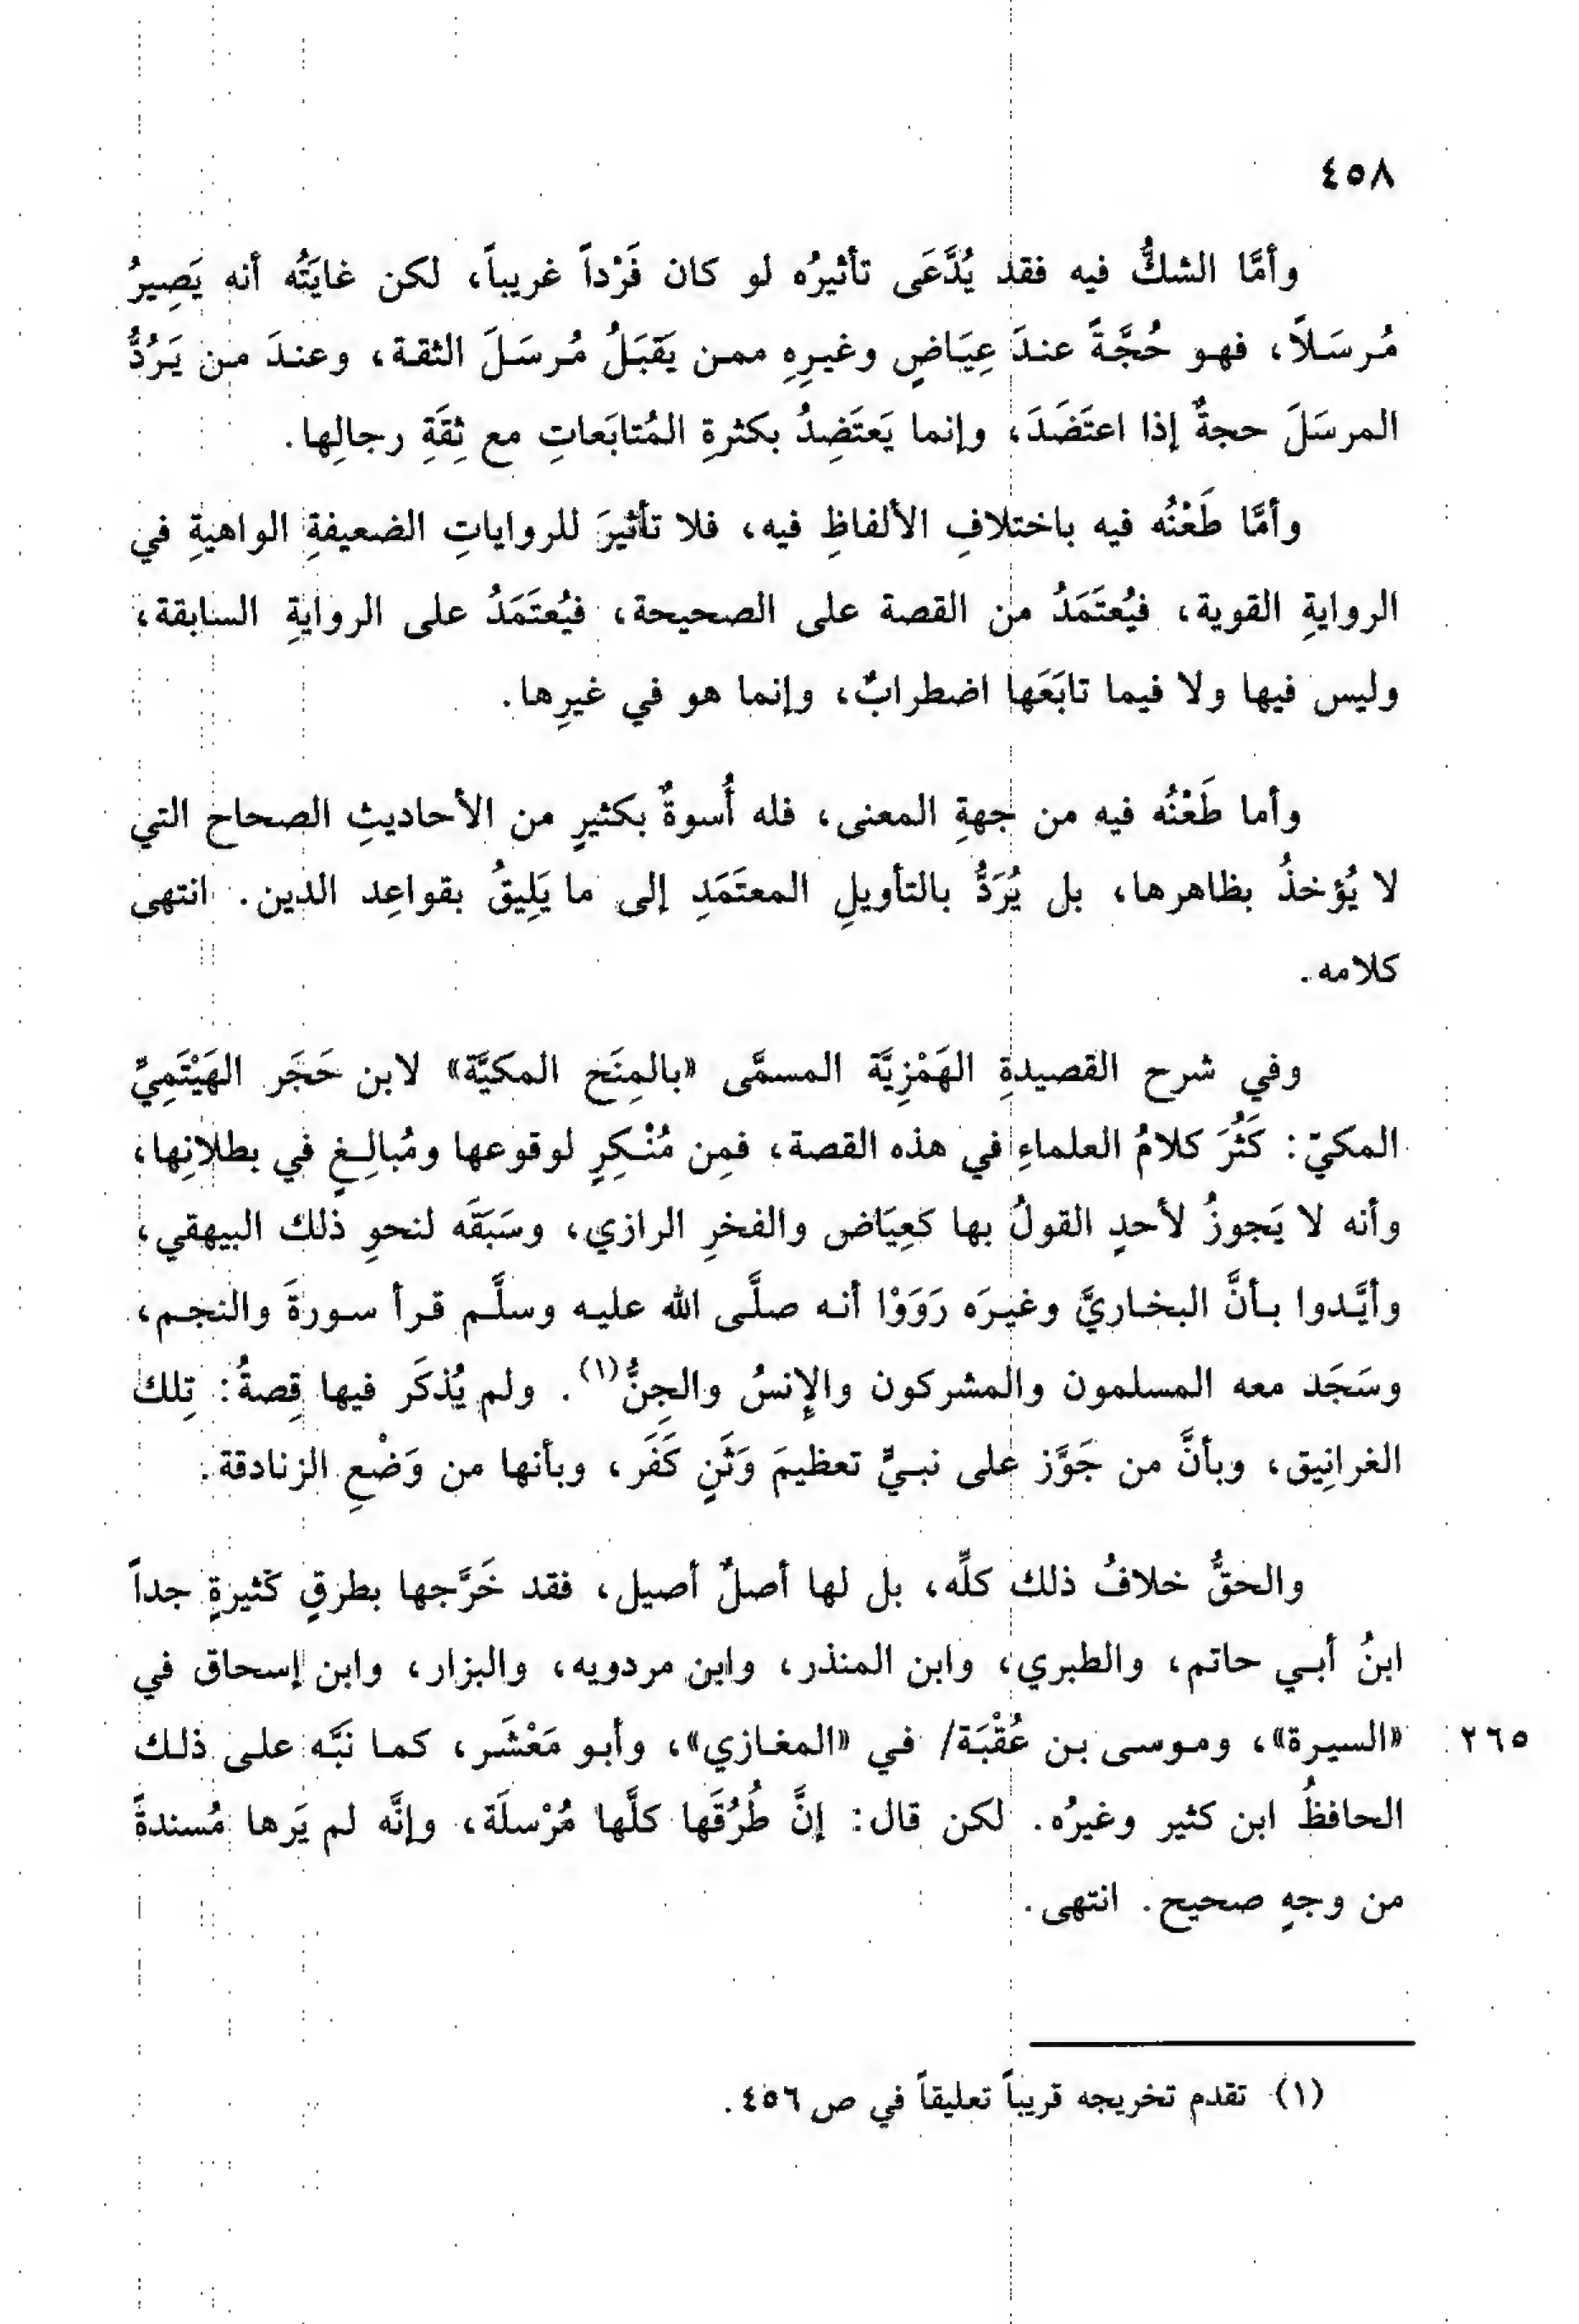 ٤٥٨
وأمَّا الشكُّ فيه فقد يُدَّعَى تأثيرُه لو كان فَرْداً غريباً، لكن غايَتُه أنه يَصِيرُ
مُرسَلاً، فهو حُجَّةً عندَ عِيَاضٍ وغيرِهِ ممن يَقبَلُ مُرسَلَ الثقة، وعندَ من يَرُدُّ
المرسَلَ حجةٌ إذا اعتَضَدَ، وإنما يَعتَضِدُ بكثرةِ المُتابَعاتِ مع ثِقَةِ رجالِها.
وأمَّا طَعْنُه فيه باختلافِ الألفاظِ فيه، فلا تأثيرَ للرواياتِ الضعيفةِ الواهيةِ في
الروايةِ القوية، فيُعتَمَدُ من القصة على الصحيحة، فيُعتَمَدُ على الروايةِ السابقة،
وليس فيها ولا فيما تابَعَها اضطرابٌ، وإنما هو في غيرِها.
وأما طَعْنُه فيه من جهةِ المعنى، فله أُسوةٌ بكثيرٍ من الأحاديثِ الصحاح التي
لا يُؤخذُ بظاهرها، بل يُرَدُّ بالتأويلِ المعتَمَدِ إلى ما يَلِيقُ بقواعِد الدين. انتهى
كلامه.
وفي شرح القصيدةِ الهَمْزِيَّة المسمَّى «بالمِنَح المكيَّة» لابن حَجَر الهَيْتَمِيِّ
المكيّ: كَثُرَ كلامُ العلماءِ في هذه القصة، فمِن مُنْكِرٍ لوقوعها ومُبالِغٍ في بطلانِها،
وأنه لا يَجوزُ لأحدٍ القولُ بها كعِيَاض والفخرِ الرازي، وسَبَقَه لنحوِ ذلك البيهقي،
وأيَّدوا بأنَّ البخاريَّ وغيرَه رَوَوْا أنه صلَّى الله عليه وسلَّم قرأ سورةَ والنجم،
وسَجَد معه المسلمون والمشركون والإنسُ والجِنُّ(١). ولم يُذكَر فيها قِصةُ: تِلك
الغرانِيق، وبأنَّ من جَوَّز على نبيٍّ تعظيمَ وَثَنٍ كَفَر، وبأنها من وَضْعِ الزنادقة.
والحقُّ خلافُ ذلك كلِّه، بل لها أصلٌ أصيل، فقد خَرَّجها بطرقٍ كثيرةٍ جداً
ابنُ أبي حاتم، والطبري، وابن المنذر، وابن مردويه، والبزار، وابن إسحاق في
«السيرة»، وموسى بن عُقْبَة/ في «المغازي»، وأبو مَعْشَر، كما نَبَّه على ذلك
٢٦٥
الحافظُ ابن كثير وغيرُه. لكن قال: إنَّ طُرُقَها كلَّها مُرْسلَة، وإنَّه لم يَرها مُسندةً
من وجهٍ صحيح. انتهى.
(١) تقدم تخريجه قريباً تعليقاً في ص ٤٥٦.